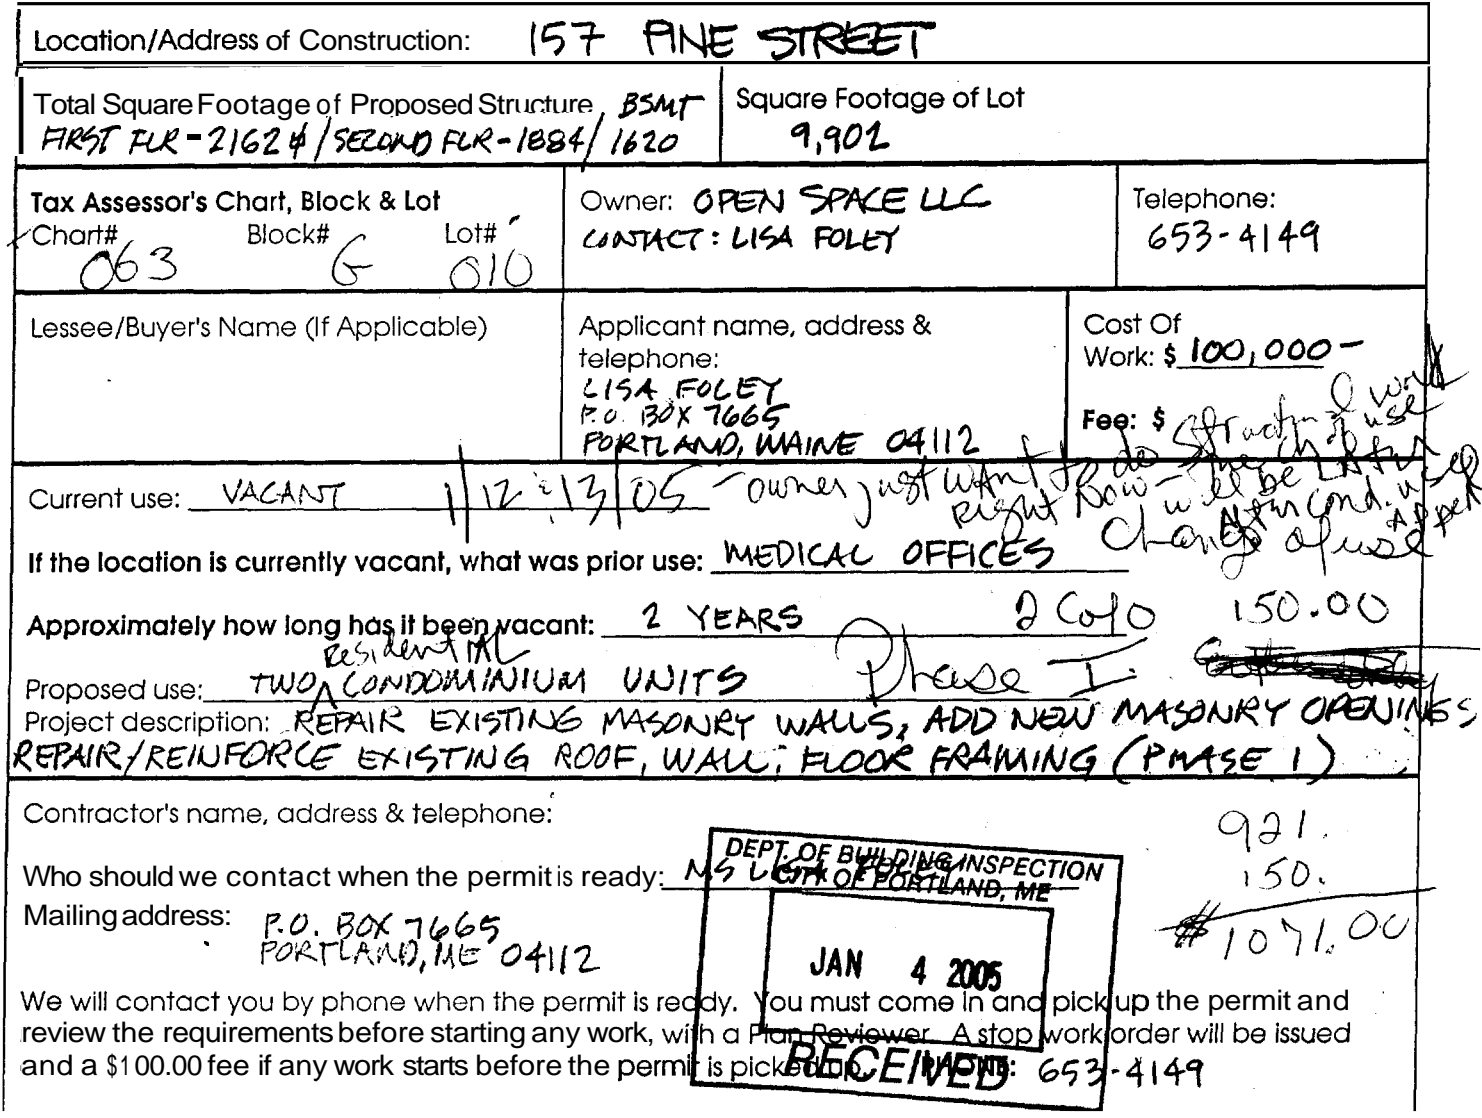 Location/Address of Construction: 157 PINE STREET
Total Square Footage of Proposed Structure BSMT
FIRST FLR - 2162 ⌀ / SECOND FLR - 1884 / 1620
Square Footage of Lot
9,902
Tax Assessor's Chart, Block & Lot
Chart# Block# Lot#
063 G 010
Owner: OPEN SPACE LLC
CONTACT: LISA FOLEY
Telephone:
653-4149
Lessee/Buyer's Name (If Applicable)
Applicant name, address &
telephone:
LISA FOLEY
P.O. BOX 7665
PORTLAND, MAINE 04112
Cost Of
Work: $ 100,000-
Fee: $
Current use: VACANT
1/12 & 13/05 - owner just want to do structural work
Right Now - the ch of use
will be
After cond. use Appeal
Change of use
If the location is currently vacant, what was prior use: MEDICAL OFFICES
Approximately how long has it been vacant: 2 YEARS
2 CofO 150.00
Residential
Proposed use: TWO ^ CONDOMINIUM UNITS Phase I
Project description: REPAIR EXISTING MASONRY WALLS, ADD NEW MASONRY OPENINGS,
REPAIR/REINFORCE EXISTING ROOF, WALL, FLOOR FRAMING (PHASE 1)
Contractor's name, address & telephone:
921.
150.
$1071.00
Who should we contact when the permit is ready: MS LISA FOLEY
Mailing address: P.O. BOX 7665
PORTLAND, ME 04112
DEPT. OF BUILDING INSPECTION
CITY OF PORTLAND, ME
JAN 4 2005
RECEIVED
We will contact you by phone when the permit is ready. You must come in and pick up the permit and
review the requirements before starting any work, with a Plan Reviewer. A stop work order will be issued
and a $100.00 fee if any work starts before the permit is picked up. PHONE: 653-4149